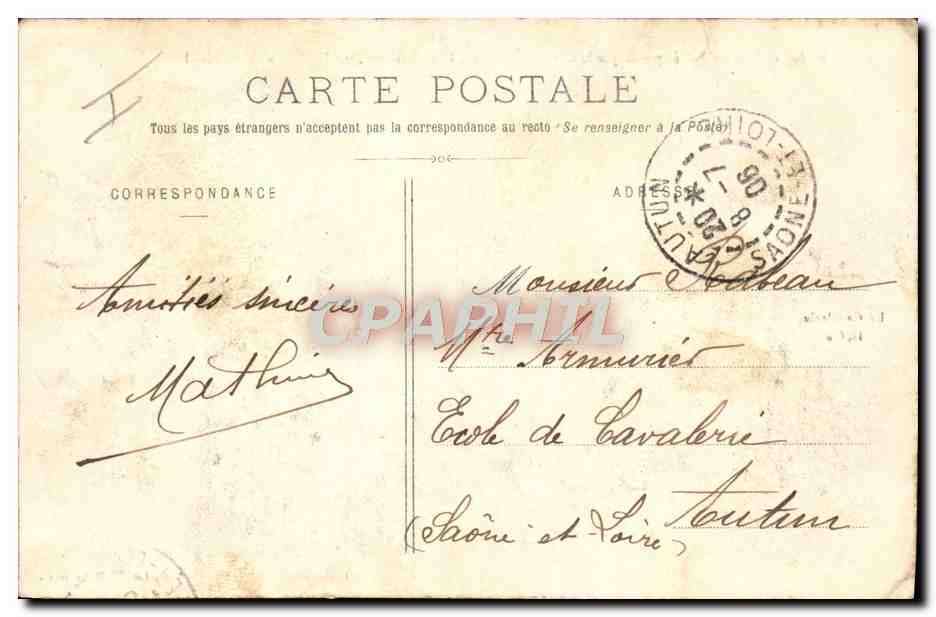 I
CARTE POSTALE
Tous les pays étrangers n'acceptent pas la correspondance au recto (Se renseigner à la Poste)
CORRESPONDANCE
ADRESSE
AUTUN
SAONE-ET-LOIRE
20 *
8 -7
06
Amitiés sincères
Monsieur
Mtre Armurier
Mathieu
Ecole de Cavalerie
Autun
(Saône et Loire)
CPAPHIL